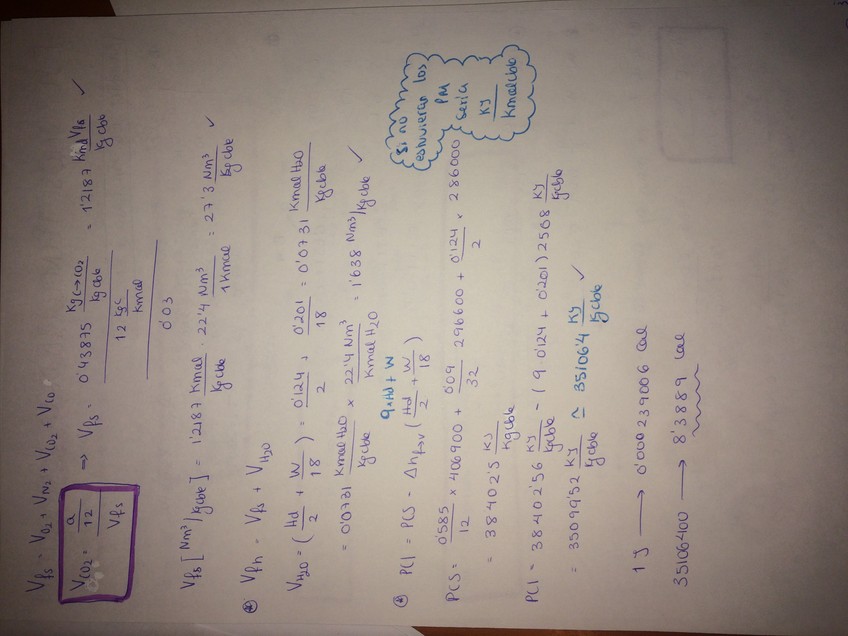 Vfs = VO2 + VN2 + VCO2 + VCO
VCO2 = (a/12)/Vfs ⇒ Vfs = (0'43875 KgC→CO2/Kgcble / 12 KgC/Kmol) / 0'03 = 1'2187 KmolVfs/Kgcble ✓
Vfs [Nm³/Kgcble] = 1'2187 Kmol/Kgcble · 22'4 Nm³/1Kmol = 27'3 Nm³/Kgcble ✓
* Vfh = Vfs + VH2O
VH2O = (Hd/2 + W/18) = 0'124/2 + 0'201/18 = 0'0731 KmolH2O/Kgcble
= 0'0731 KmolH2O/Kgcble × 22'4 Nm³/KmolH2O = 1'638 Nm³/Kgcble ✓
9×Hd + W
* PCI = PCS - Δhf→v (Hd/2 + W/18)
PCS = 0'585/12 × 406900 + 0'09/32 296600 + 0'124/2 × 286000
= 38402'5 KJ/Kgcble
Si no
estuvieran los
PM
sería
KJ/Kmolcble
PCI = 38402'56 KJ/Kgcble - (9 0'124 + 0'201) 2508 KJ/Kgcble
= 35099'52 KJ/Kgcble ≃ 35106'4 KJ/Kgcble ✓
1 J → 0'000239006 Cal
35106400 → 8'3889 Cal